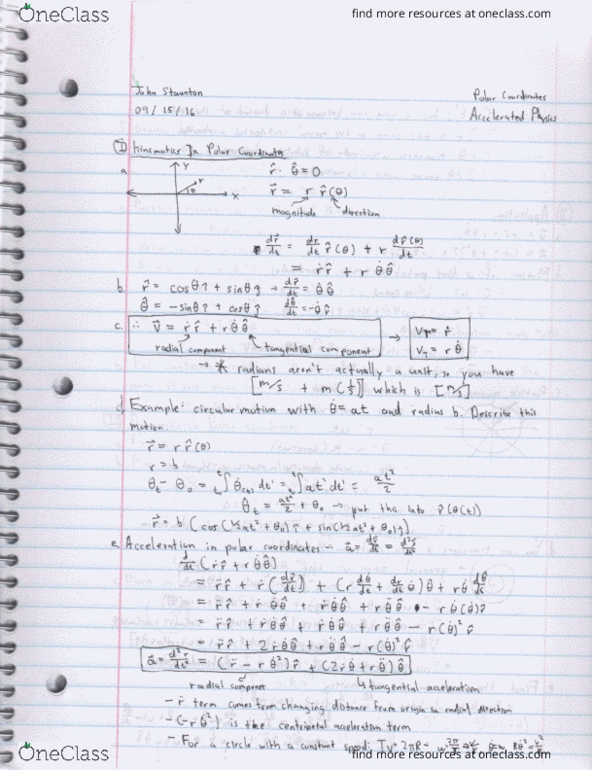 OneClass
find more resources at oneclass.com
John Staunton
Polar Coordinates
09/15/16
Accelerated Physics
I Kinematics In Polar Coordinates
a.
y
x
r
θ
r̂ · θ̂ = 0
r⃗ = r r̂(θ)
magnitude direction
dr⃗/dt = dr/dt r̂(θ) + r dr̂(θ)/dt
= ṙr̂ + rθ̇θ̂
b. r̂ = cosθ î + sinθ ĵ → dr̂/dt = θ̇θ̂
θ̂ = -sinθ î + cosθ ĵ dθ̂/dt = -θ̇r̂
c. ∴ v⃗ = ṙr̂ + rθ̇θ̂ →
radial component tangential component
= ṙ
V_T = rθ̇
→ * radians aren't actually a unit, so you have
[m/s + m(1/s)] which is [m/s]
d. Example: circular motion with θ̇ = at and radius b. Describe this
motion.
r⃗ = r r̂(θ)
r = b
θt - θ0 = ∫ θ̇(t') dt' = ∫ at' dt' = at²/2
θt = at²/2 + θ0 → put this into r̂(θ(t))
r⃗ = b(cos(½at² + θ0)î + sin(½at² + θ0)ĵ)
e. Acceleration in polar coordinates → a⃗ = dv⃗/dt = d²r⃗/dt²
d/dt(ṙr̂ + rθ̇θ̂)
= r̈r̂ + ṙ(dr̂/dt) + (r dθ̇/dt + dr/dt θ̇)θ̂ + rθ̇ dθ̂/dt
= r̈r̂ + ṙθ̇θ̂ + ṙθ̇θ̂ + rθ̈θ̂ - rθ̇(θ̇)r̂
= r̈r̂ + ṙθ̇θ̂ + ṙθ̇θ̂ + rθ̈θ̂ - r(θ̇)²r̂
= r̈r̂ + 2ṙθ̇θ̂ + rθ̈θ̂ - r(θ̇)²r̂
a⃗ = d²r⃗/dt² = (r̈ - rθ̇²)r̂ + (2ṙθ̇ + rθ̈)θ̂
radial component ↳ tangential acceleration
- r̈ term comes from changing distance from origin in radial direction
- (-rθ̇²) is the centripetal acceleration term
- For a circle with a constant speed:
OneClass
find more resources at oneclass.com